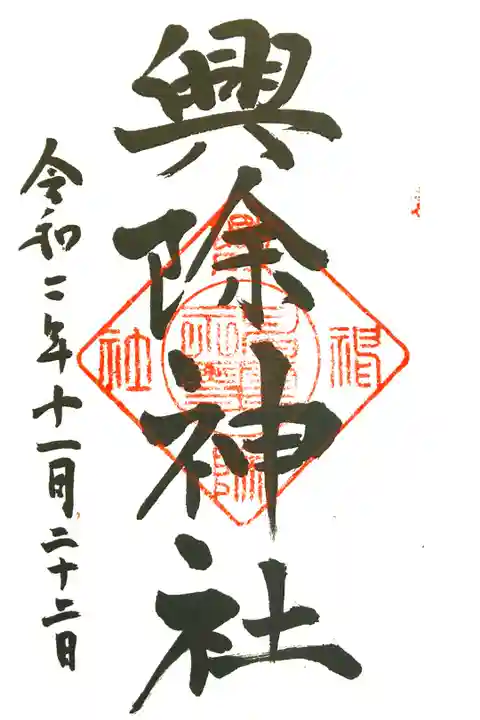 興除神社
令和二年十一月二十二日
興除
神
社